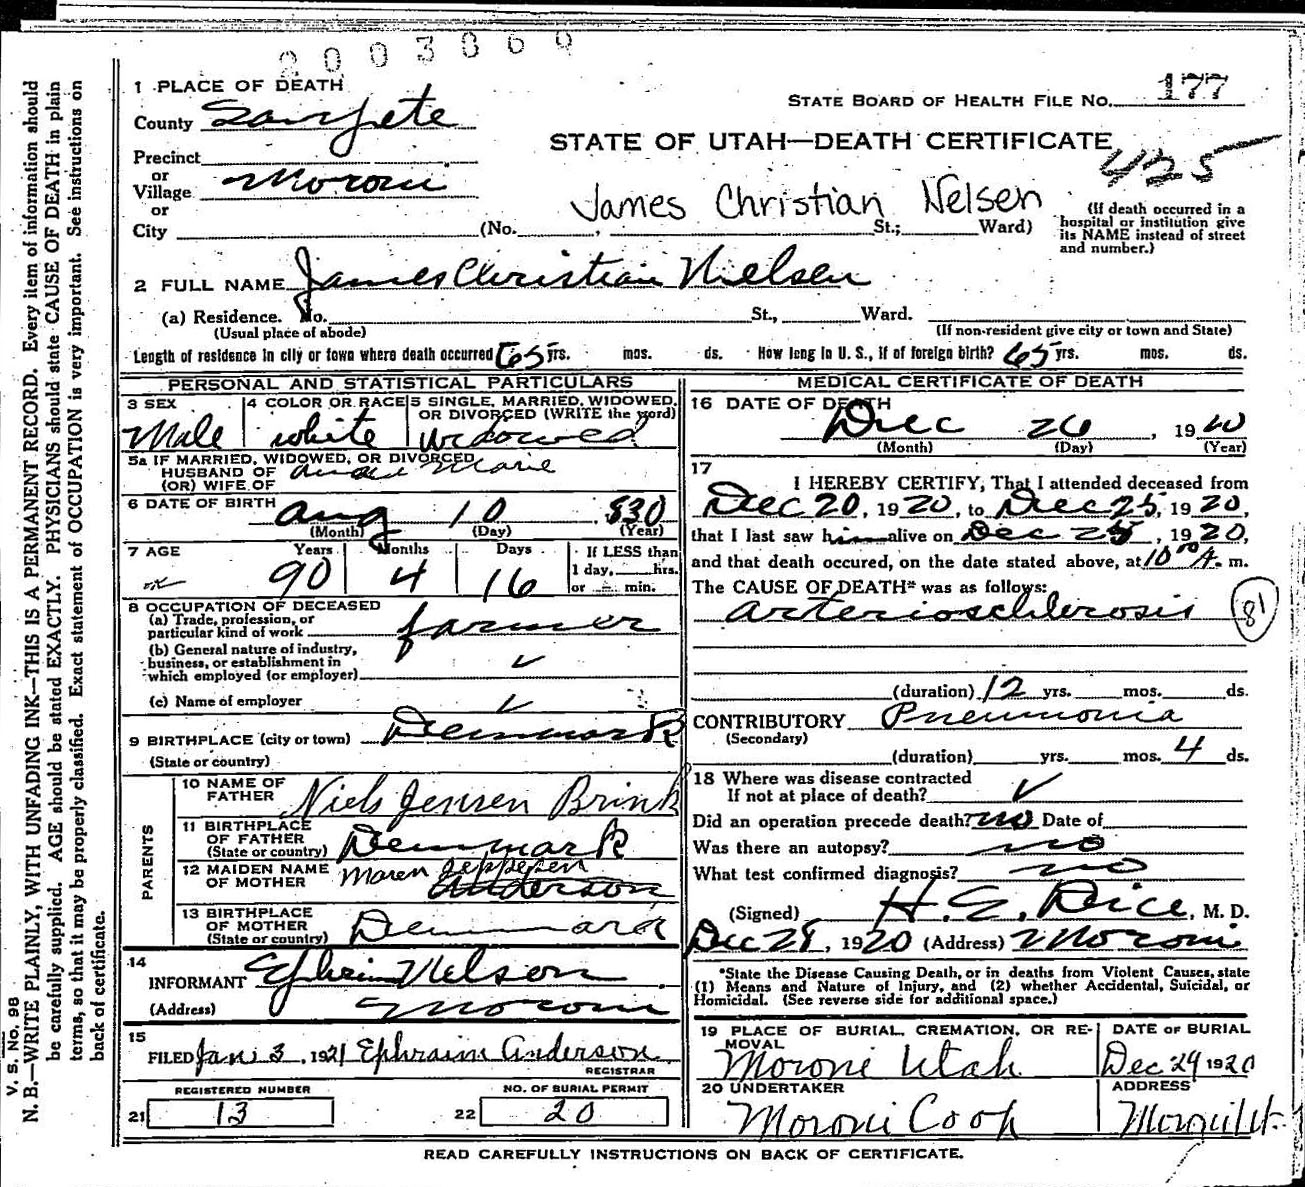 2003869
1 PLACE OF DEATH
STATE BOARD OF HEALTH FILE No. 177
County Sanpete
STATE OF UTAH—DEATH CERTIFICATE
425
Precinct
or
Village Moroni
or
James Christian Nelsen
City (No. , St.; Ward)
(If death occurred in a hospital or institution give its NAME instead of street and number.)
2 FULL NAME James Christian Nielsen
(a) Residence. No. St., Ward.
(Usual place of abode) (If non-resident give city or town and State)
Length of residence in city or town where death occurred 65 yrs. mos. ds. How long in U. S., if of foreign birth? 65 yrs. mos. ds.
PERSONAL AND STATISTICAL PARTICULARS
3 SEX Male
4 COLOR OR RACE white
5 SINGLE, MARRIED, WIDOWED, OR DIVORCED (WRITE the word) widowed
5a IF MARRIED, WIDOWED, OR DIVORCED
HUSBAND OF Marie
(OR) WIFE OF
6 DATE OF BIRTH Aug 10 830
(Month) (Day) (Year)
7 AGE Years 90 Months 4 Days 16
If LESS than 1 day, hrs. or min.
8 OCCUPATION OF DECEASED
(a) Trade, profession, or particular kind of work farmer
(b) General nature of industry, business, or establishment in which employed (or employer)
(c) Name of employer
9 BIRTHPLACE (city or town) Denmark
(State or country)
PARENTS
10 NAME OF FATHER Niels Jensen Brink
11 BIRTHPLACE OF FATHER (State or country) Denmark
12 MAIDEN NAME OF MOTHER Maren Jeppesen Anderson
13 BIRTHPLACE OF MOTHER (State or country) Denmark
14
INFORMANT Ephrim Nelson
(Address) Moroni
15
FILED Jan 3, 1921 Ephraim Anderson
REGISTRAR
REGISTERED NUMBER NO. OF BURIAL PERMIT
21 13 22 20
MEDICAL CERTIFICATE OF DEATH
16 DATE OF DEATH
Dec 26, 1920
(Month) (Day) (Year)
17
I HEREBY CERTIFY, That I attended deceased from
Dec 20, 1920, to Dec 25, 1920,
that I last saw him alive on Dec 25, 1920,
and that death occured, on the date stated above, at 10 00 A. m.
The CAUSE OF DEATH* was as follows:
arterioschlerosis 81
(duration) 12 yrs. mos. ds.
CONTRIBUTORY Pneumonia
(Secondary)
(duration) yrs. mos. 4 ds.
18 Where was disease contracted
If not at place of death?
Did an operation precede death? no Date of
Was there an autopsy? no
What test confirmed diagnosis? no
(Signed) H. E. Dice, M. D.
Dec 28, 1920 (Address) Moroni
*State the Disease Causing Death, or in deaths from Violent Causes, state
(1) Means and Nature of Injury, and (2) whether Accidental, Suicidal, or
Homicidal. (See reverse side for additional space.)
19 PLACE OF BURIAL, CREMATION, OR REMOVAL Moroni Utah
DATE OF BURIAL Dec 29 1920
20 UNDERTAKER Moroni Coop
ADDRESS Moroni Ut.
READ CAREFULLY INSTRUCTIONS ON BACK OF CERTIFICATE.
V. S. No. 98
N. B.—WRITE PLAINLY, WITH UNFADING INK—THIS IS A PERMANENT RECORD. Every item of information should
be carefully supplied. AGE should be stated EXACTLY. PHYSICIANS should state CAUSE OF DEATH in plain
terms, so that it may be properly classified. Exact statement of OCCUPATION is very important. See instructions on
back of certificate.